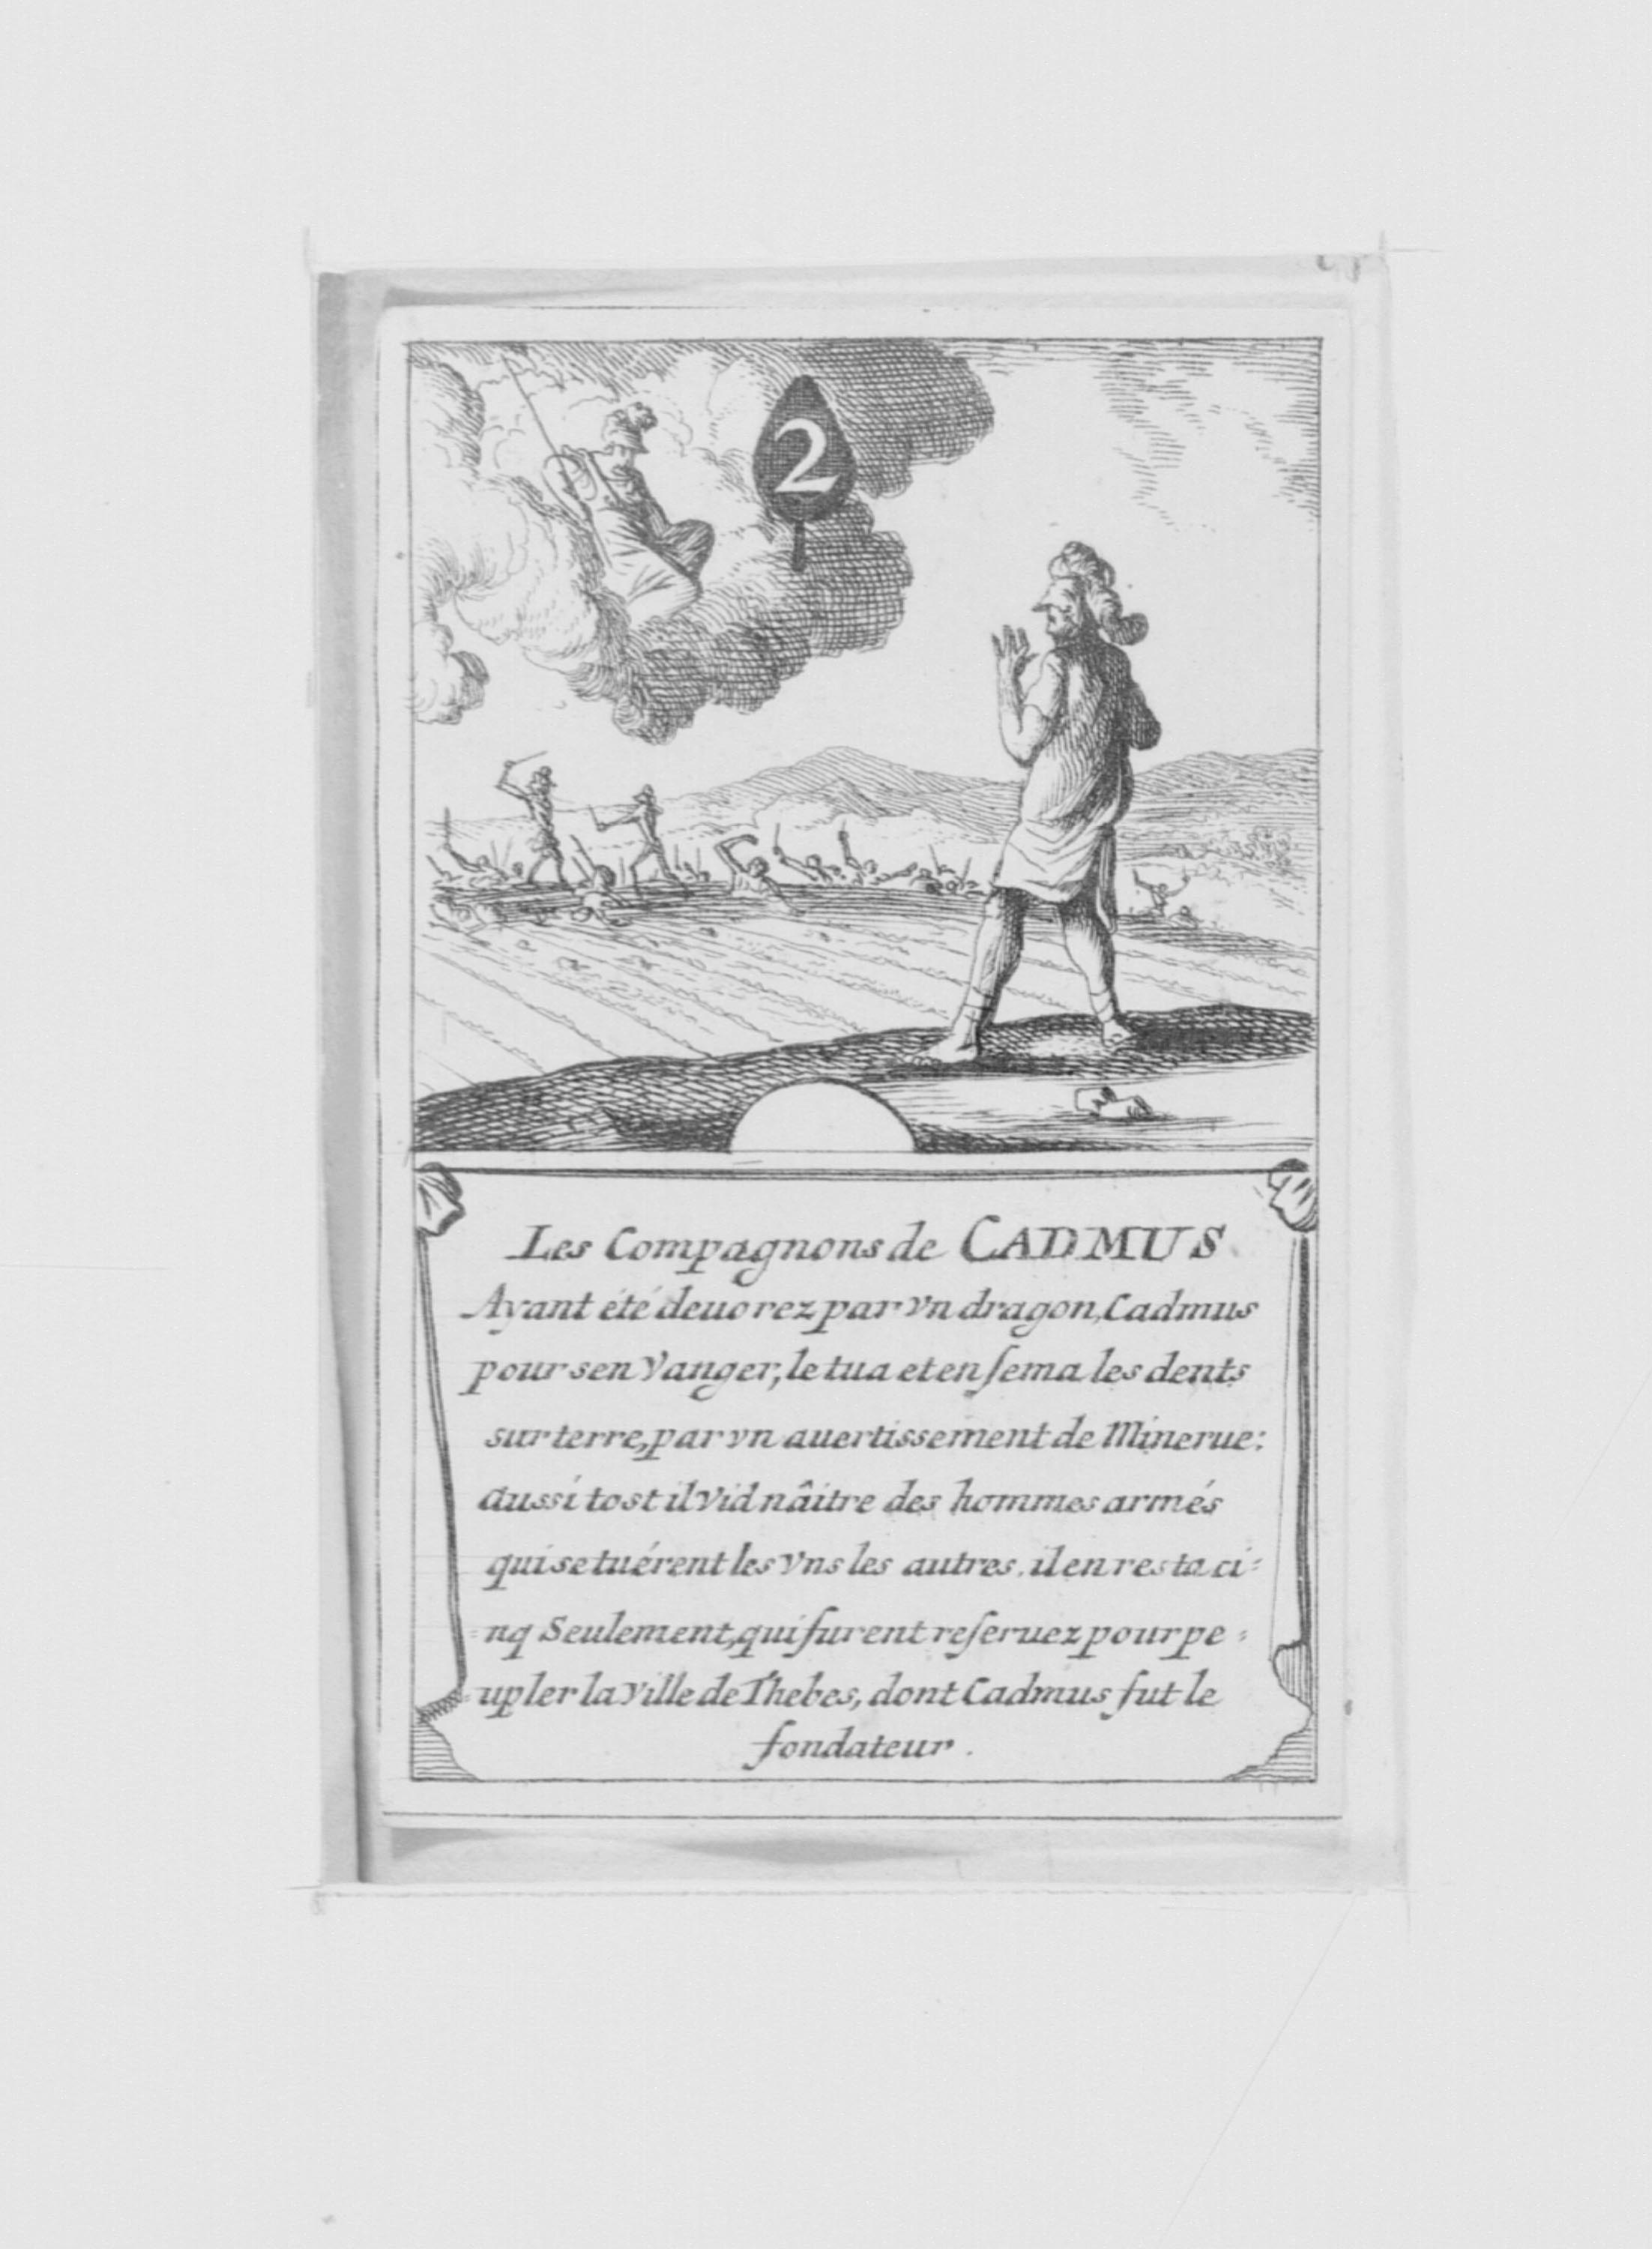 2
Les Compagnons de CADMUS
Ayant été deuorez par vn dragon, Cadmus
pour sen vanger, le tua et en ſema les dents
sur terre, par vn auertissement de Minerue:
aussi tost il vid nâitre des hommes armés
qui se tuérent les vns les autres. il en resta ci=
=nq Seulement, qui furent reſeruez pour pe=
=upler la ville de Thebes, dont Cadmus fut le
fondateur.